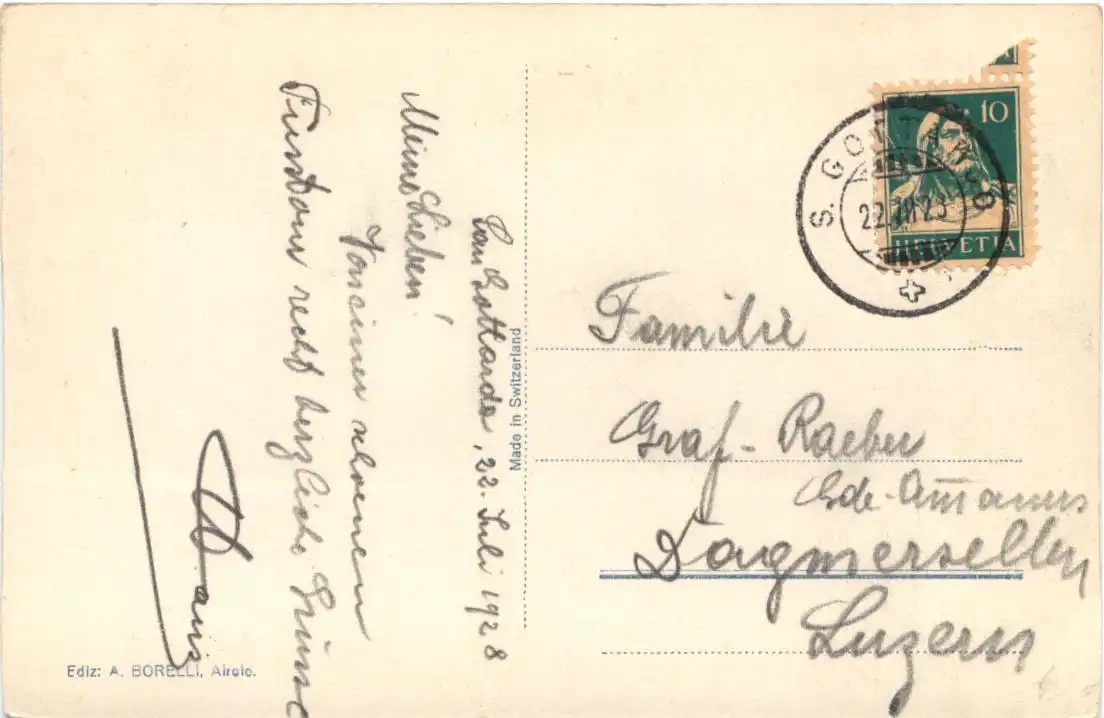 San Gottardo, 22. Juli 1928
Meine Lieben!
Von einer schoenen
recht herzliche Grüsse
Hans
Ediz: A. BORELLI, Airolo.
Made in Switzerland
10
HELVETIA
S. GOTTARDO
22.VII.28
Familie
Graf-Raeber
Gde-Am̅anns
Dagmersellen
Luzern